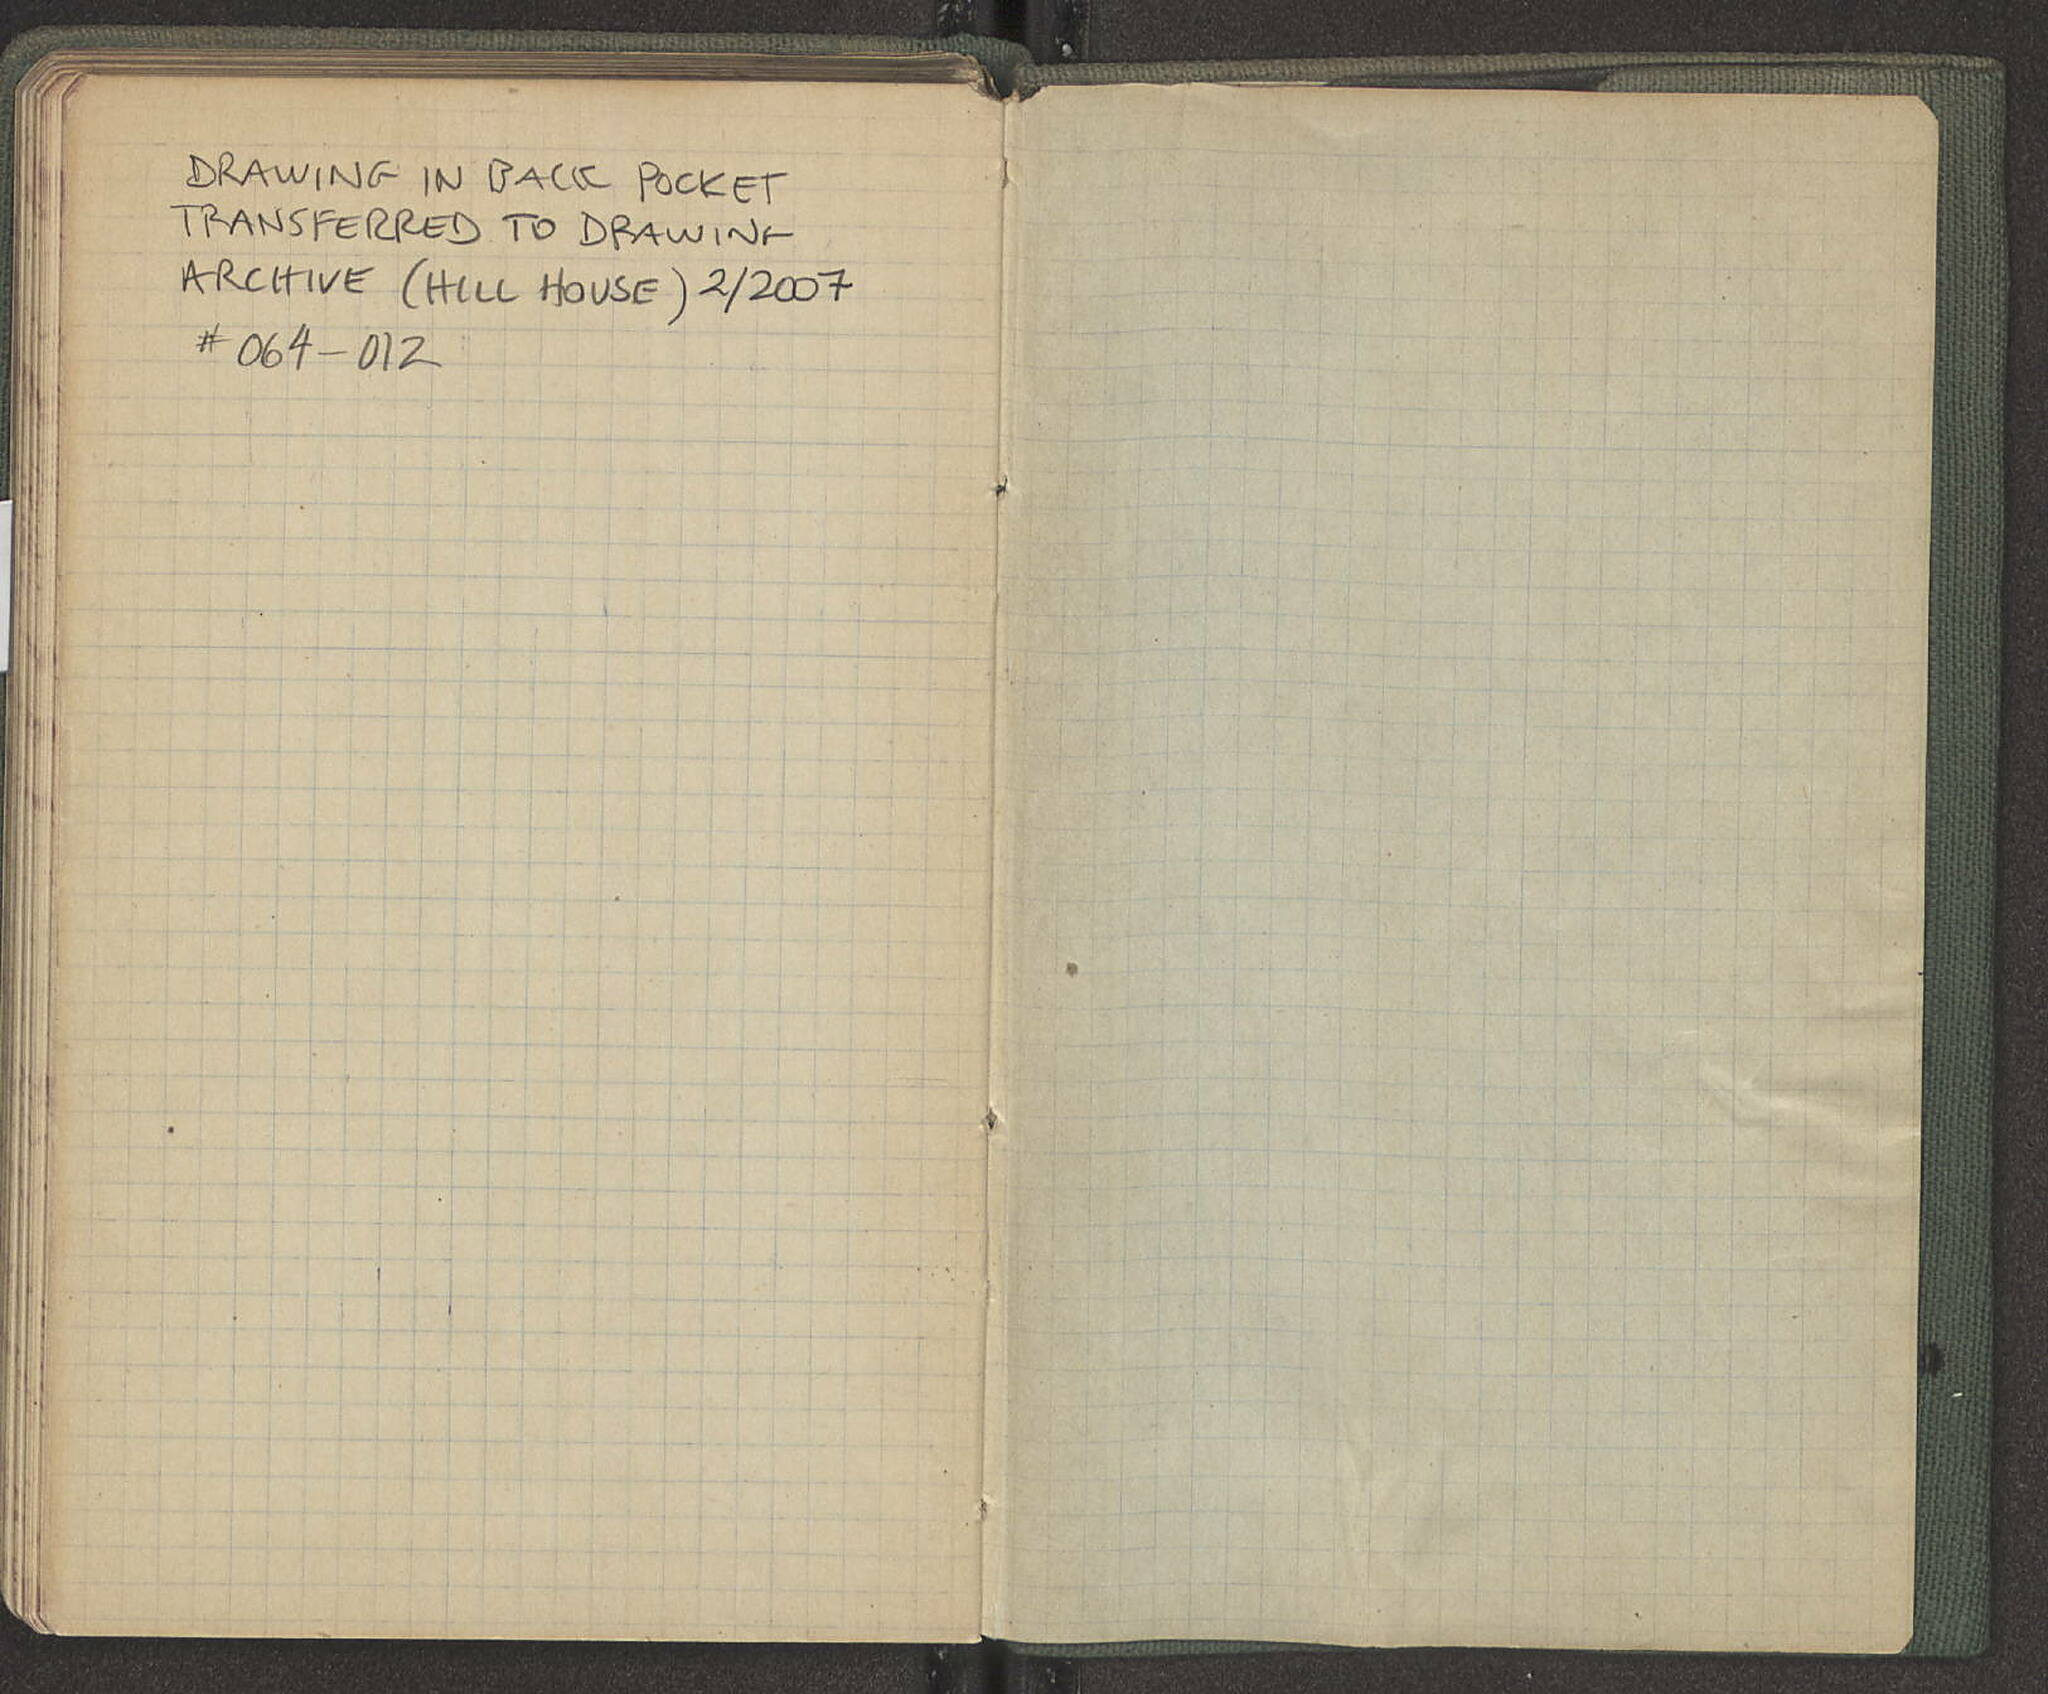 DRAWING IN BACK POCKET
TRANSFERRED TO DRAWING
ARCHIVE (HILL HOUSE) 2/2007
# 064-012